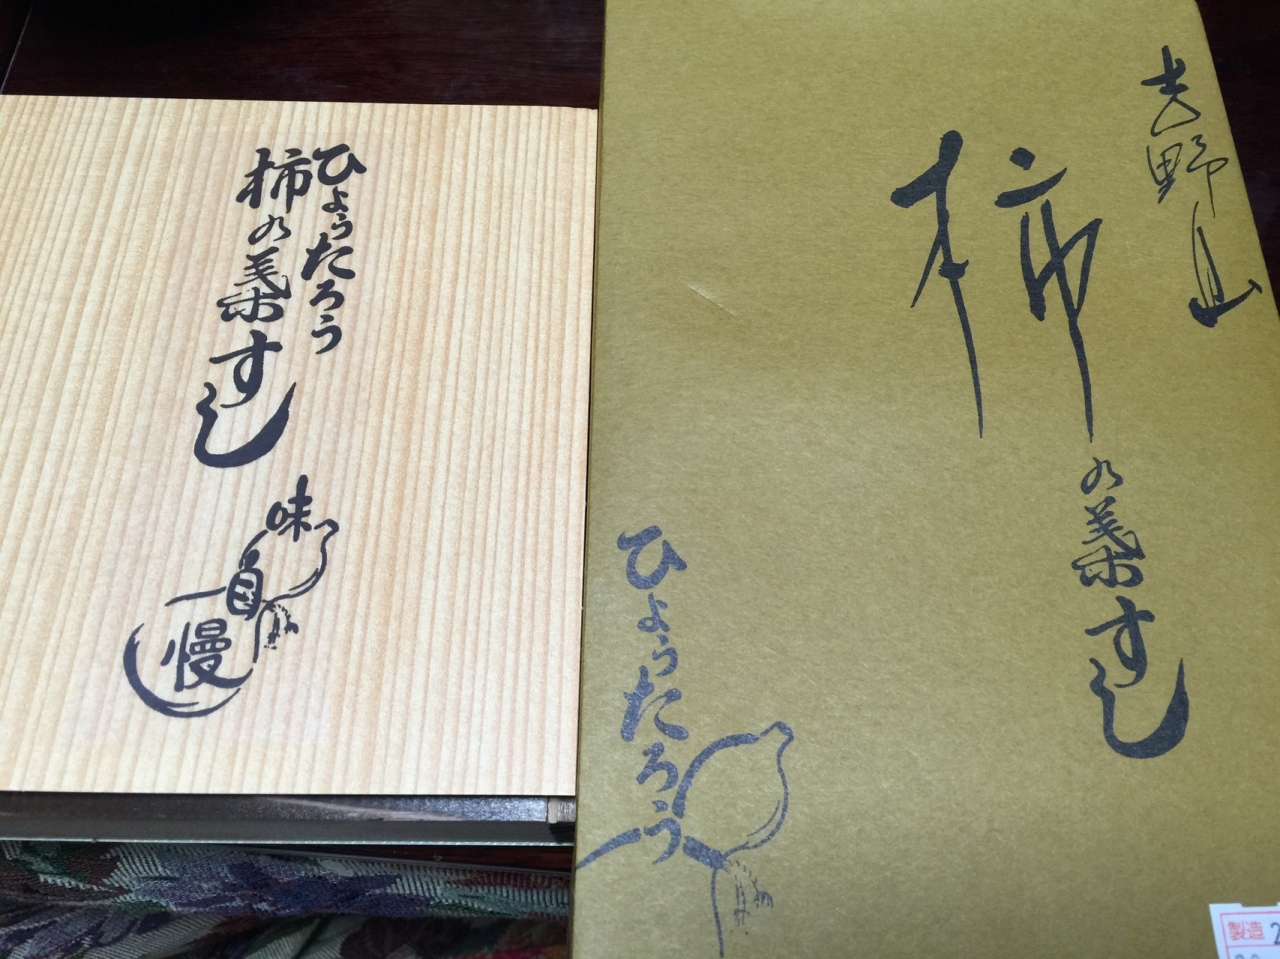 ひょうたろう
柿の葉すし
味自慢
吉野山
柿の葉すし
ひょうたろう
製造 2